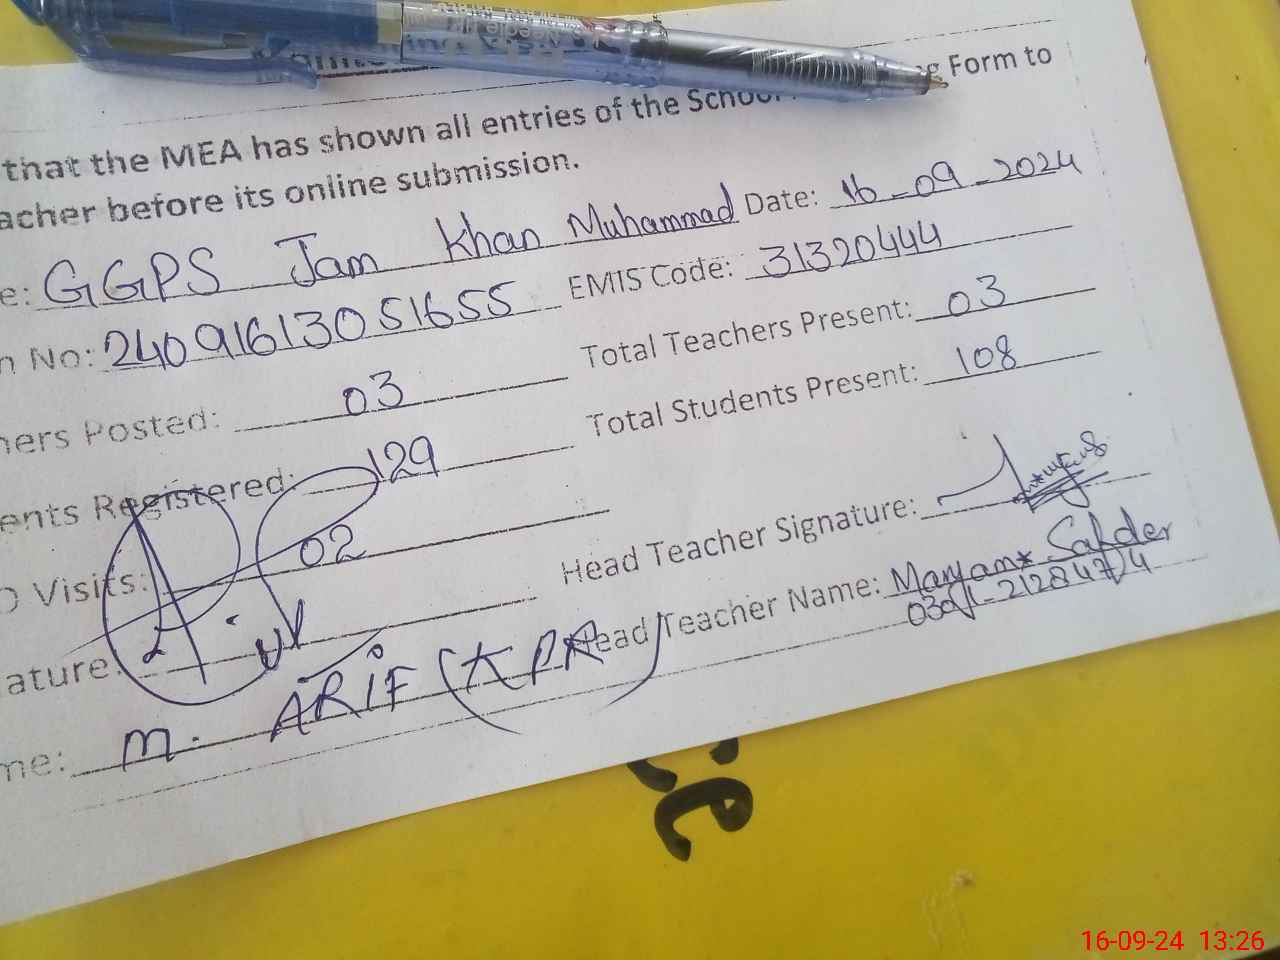 g Form to
that the MEA has shown all entries of the School
acher before its online submission.
e: GGPS Jam Khan Muhammad Date: 16-09-2024
n No: 2409161305 1655 EMIS Code: 31320444
hers Posted: 03 Total Teachers Present: 03
ents Registered: 129 Total Students Present: 108
O Visits: 02
ature: Head Teacher Signature:
me: M. ARIF Head Teacher Name: Maryam
16-09-24 13:26